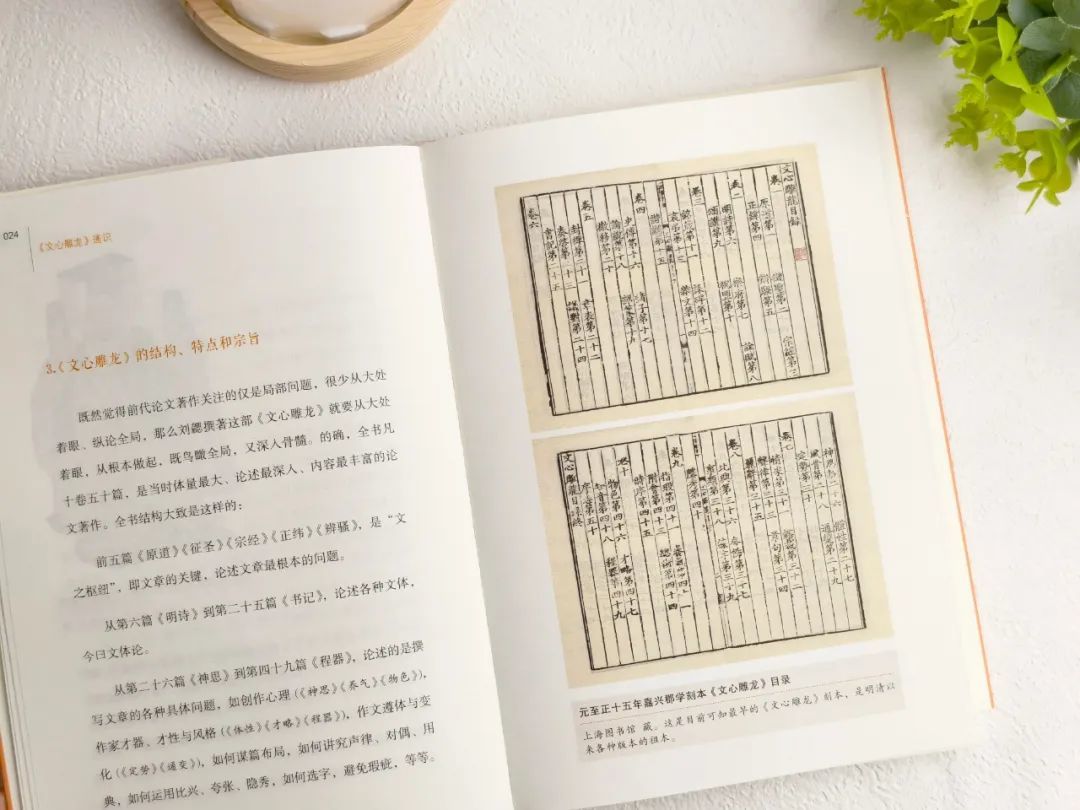 024
《文心雕龙》通识
3.《文心雕龙》的结构、特点和宗旨
既然觉得前代论文著作关注的仅是局部问题，很少从大处
着眼、纵论全局，那么刘勰撰著这部《文心雕龙》就要从大处
着眼，从根本做起，既鸟瞰全局，又深入骨髓。的确，全书凡
十卷五十篇，是当时体量最大、论述最深入、内容最丰富的论
文著作。全书结构大致是这样的：
前五篇《原道》《征圣》《宗经》《正纬》《辨骚》，是“文
之枢纽”，即文章的关键，论述文章最根本的问题。
从第六篇《明诗》到第二十五篇《书记》，论述各种文体，
今曰文体论。
从第二十六篇《神思》到第四十九篇《程器》，论述的是撰
写文章的各种具体问题，如创作心理（《神思》《养气》《物色》），
作家才器、才性与风格（《体性》《才略》《程器》），作文遵体与变
化（《定势》《通变》），如何谋篇布局，如何讲究声律、对偶、用
典，如何运用比兴、夸张、隐秀，如何选字，避免瑕疵，等等。
文心雕龍目録
卷一
原道第一
徵聖第二
宗經第三
正緯第四
辨騷第五
卷二
明詩第六
樂府第七
詮賦第八
頌讚第九
祝盟第十
卷三
銘箴第十一
誄碑第十二
哀弔第十三
雜文第十四
諧讔第十五
卷四
史傳第十六
諸子第十七
論說第十八
詔策第十九
檄移第二十
卷五
封禪第二十一
章表第二十二
奏啓第二十三
議對第二十四
書記第二十五
卷六
神思第二十六
體性第二十七
風骨第二十八
通變第二十九
定勢第三十
卷七
情采第三十一
鎔裁第三十二
聲律第三十三
章句第三十四
麗辭第三十五
卷八
比興第三十六
夸飾第三十七
事類第三十八
練字第三十九
隱秀第四十
卷九
指瑕第四十一
養氣第四十二
附會第四十三
總術第四十四
時序第四十五
卷十
物色第四十六
才略第四十七
知音第四十八
程器第四十九
序志第五十
文心雕龍目録終
元至正十五年嘉兴郡学刻本《文心雕龙》目录
上海图书馆 藏。这是目前可知最早的《文心雕龙》刻本，是明清以
来各种版本的祖本。